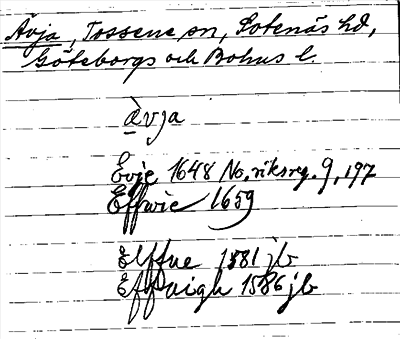 Åvja, Tossene sn, Sotenäs hd,
Göteborgs och Bohus l.
åvja
Evje 1648 No. riksreg. 9, 197
Effwie 1659
Elffue 1581 jb
Effvaigh 1586 jb